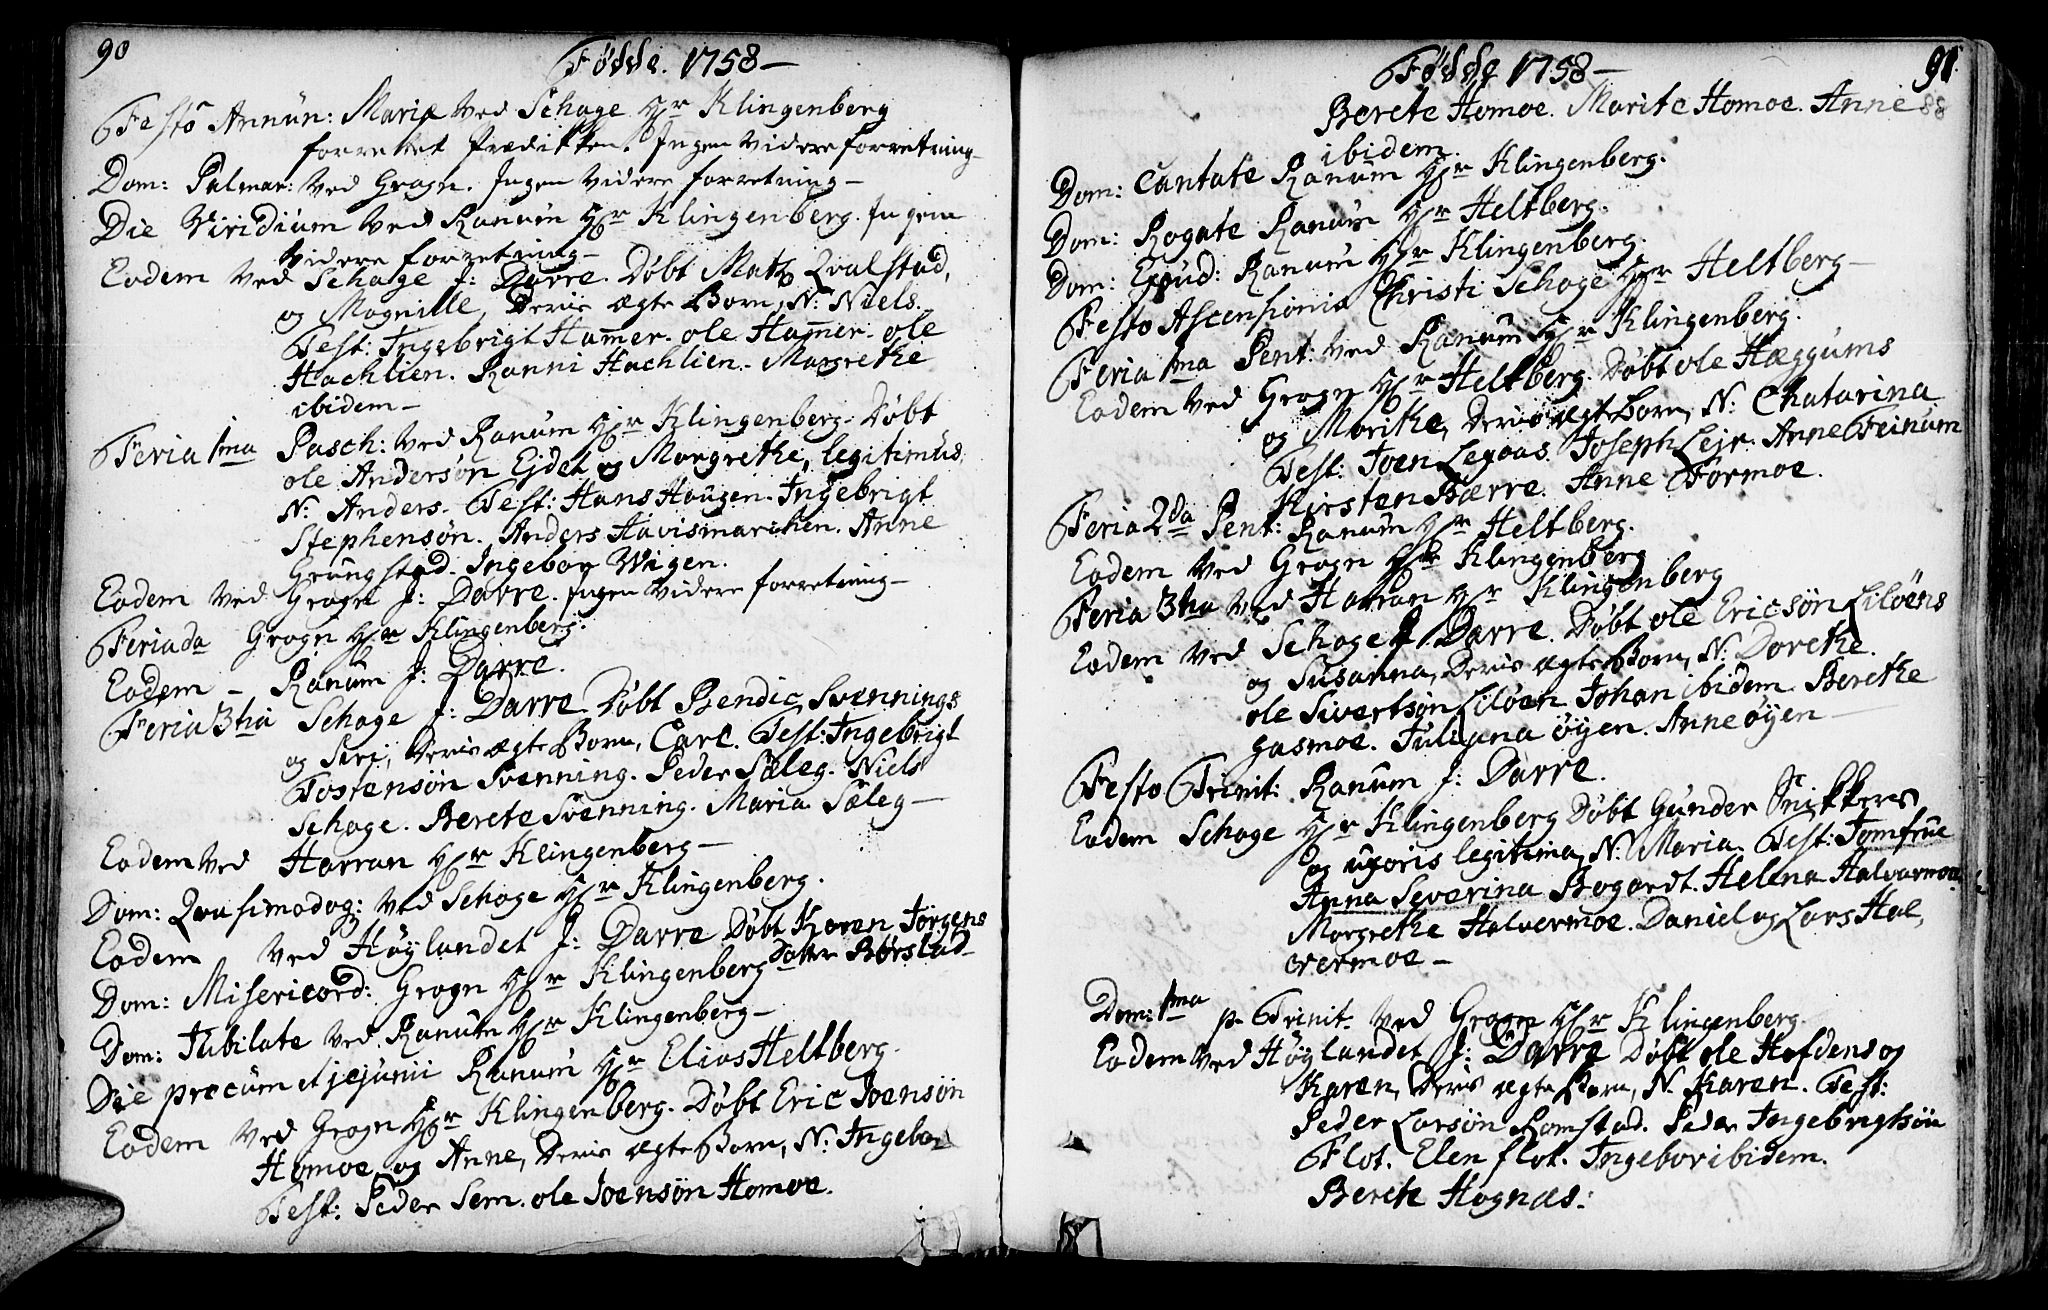 90
Fødde. 1758 —
Festo Annun: Mariæ ved Schage Hr Klingenberg
forrettet Prædikken. Ingen videre forretning —
Dom: Palmar: ved Grogn. Ingen videre forretning —
Die Viridium ved Ranum Hr Klingenberg. Ingen
videre forretning —
Eodem ved Schage J: Darre. Døbt Matz Qvalstad,
og Magnille, Deris ægte Born, N: Niels.
Test: Ingebrigt Ham̄er. ole Ham̄er. ole
Hachlien. Ranni Hachlien. Margrethe
ibidem —
Feria 1ma Pasch: ved Ranum Hr Klingenberg. Døbt
ole Andersøn Ejdet og Morgrethe, legitimus.
N: Anders. Test: Hans Haugen. Ingebrigt
Stephensøn. Anders Havismarchen. Anne
Grungstad. Ingebor Wigen.
Eodem ved Grogn J: Darre. Ingen videre forretning —
Feria da Grogn Hr Klingenberg.
Eodem — Ranum J: Darre.
Feria 3tia Schage J: Darre Døbt Bendic Svennings
og Siri, Deris ægte Born, Carl. Test: Ingebrigt
Tostensøn Svenning. Peder Sæleg. Niels
Schage. Berete Svenning. Maria Sæleg —
Eodem ved Harran Hr Klingenberg —
Dom: Qvasimodog: ved Schage Hr Klingenberg.
Eodem ved Høylandet J: Darre Døbt Karen Jørgens
Datter Børstad
Dom: Misericord: Grogn Hr Klingenberg
Dom: Jubilate ved Ranum Hr Klingenberg —
Die precum et jejunii Ranum Hr Elias Heltberg.
Eodem ved Grogn Hr Klingenberg. Døbt Eric Joensøn
Homoe og Anne, Deris ægte Born, N: Ingebor
Test: Peder Sem. ole Joensøn Homoe.
Fødde 1758 —
91.
88
Berete Homoe. Marite Homoe. Anne
ibidem.
Dom: Cantate Ranum Hr Klingenberg.
Dom: Rogate Ranum Hr Heltberg.
Dom: Exaud: Ranum Hr Klingenberg.
Festo Ascensionis Christi Schage Hr Heltberg —
Feria 1ma Pent: ved Ranum Hr Klingenberg.
Eodem ved Grogn Hr Heltberg. Døbt ole Hæggums
og Marithe, Deris ægte Born, N: Chatarina
Test: Joen Lexaas. Joseph Lejr. Anne Feinum
Kirsten Bærre. Anne Formoe.
Feria 2da Pent: Ranum Hr Heltberg.
Eodem ved Grogn Hr Klingenberg
Feria 3tia ved Harran Hr Klingenberg
Eodem ved Schage J Darre. Døbt ole Ericsøn Liløens
og Susanna, Deris ægte Born, N: Dorethe.
ole Sivertsøn Liløen Johan ibidem Berethe
Gasmoe. Juliana øyen. Anne øyen —
Festo Trinit: Ranum J: Darre.
Eodem Schage Hr Klingenberg Døbt Gunder Snikkeres
og uxoris legitima, N: Maria. Test: Jomfrue
Anna Severina Bogardt. Helena Halvarmoe
Morgrethe Halvermoe. Daniel og Lars Hal,
vermoe —
Dom: 1ma p. Trinit. ved Grogn Hr Klingenberg.
Eodem ved Høylandet J: Darre Døbt ole Hofdens og
Karen, Deris ægte Born, N. Karen. Test:
Peder Larsøn Romstad. Peder Ingebrightsøn
Flot. Elen flot. Ingebor ibidem.
Berete Hognæs: